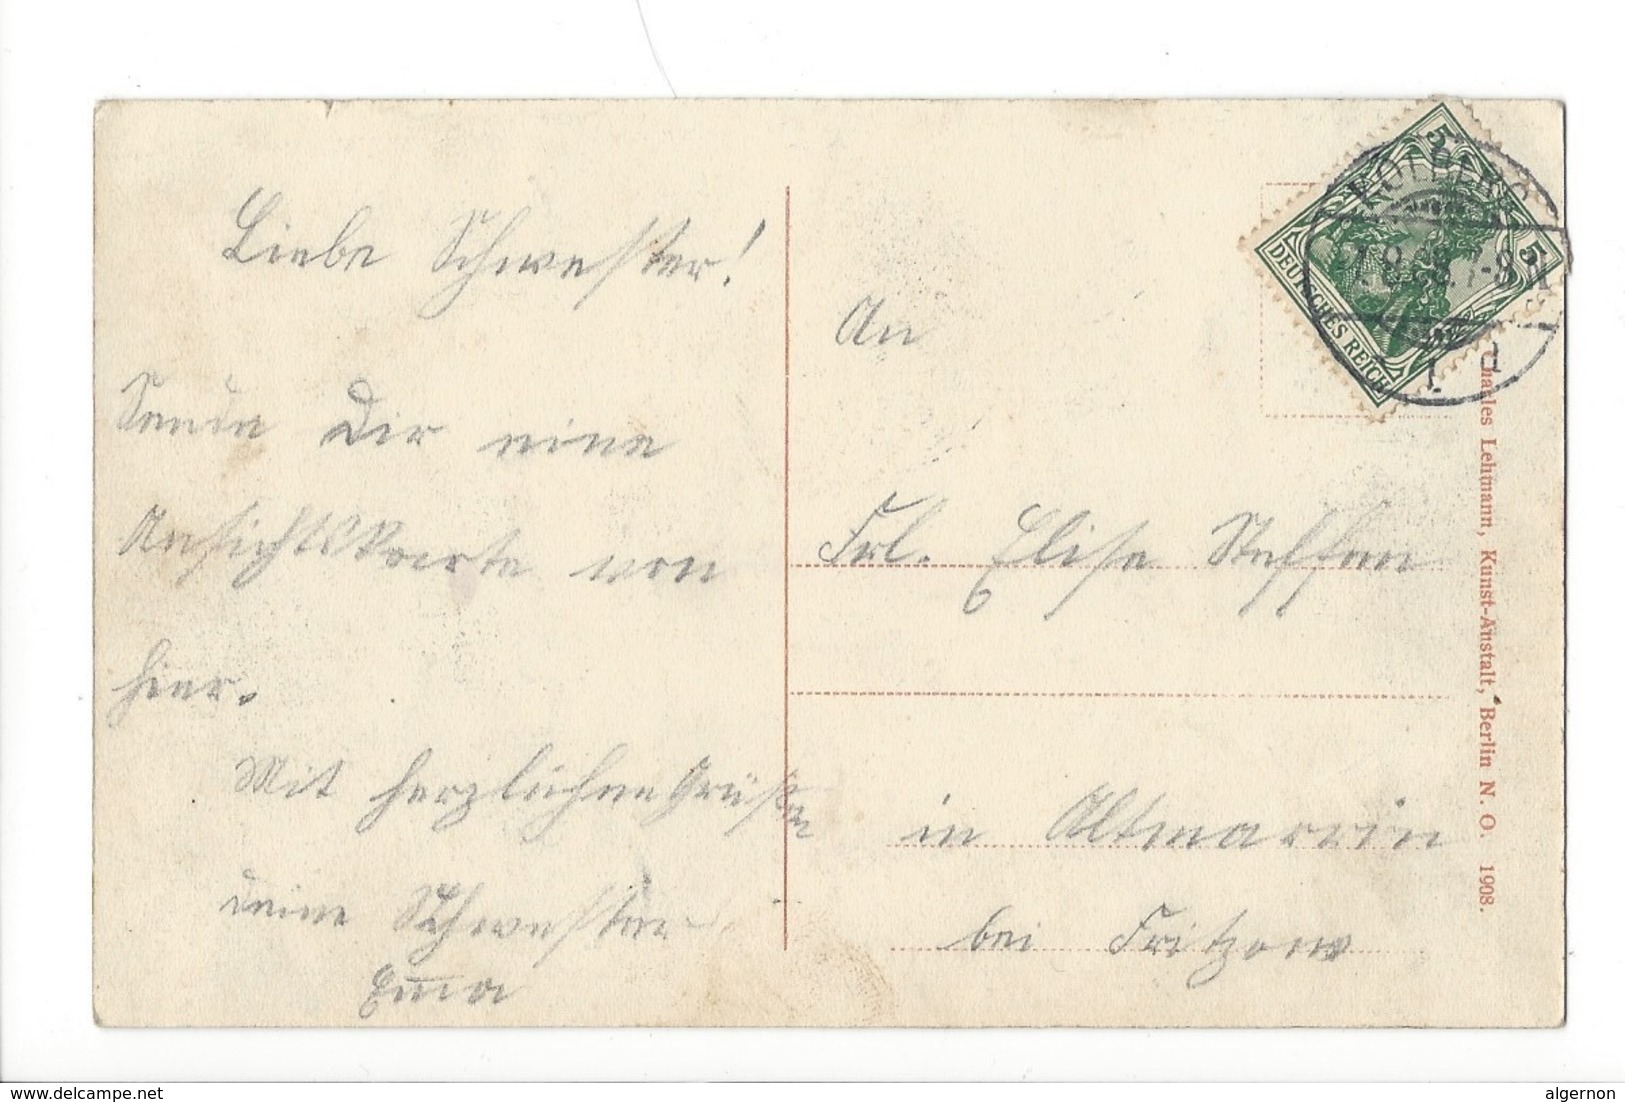 Liebe Schwester!
Sende Dir eine
Ansichtskarte von
hier.
Mit herzlichen Grüßen
deine Schwester
Em̄a
An
Frl. Elise Steffen
in Altmarrin
bei Fritzow
5
5
DEUTSCHES REICH
KOLBERG
7-8 N
1
d
Charles Lehmann, Kunst-Anstalt, Berlin N. O. 1908.
www.delcampe.net
algernon